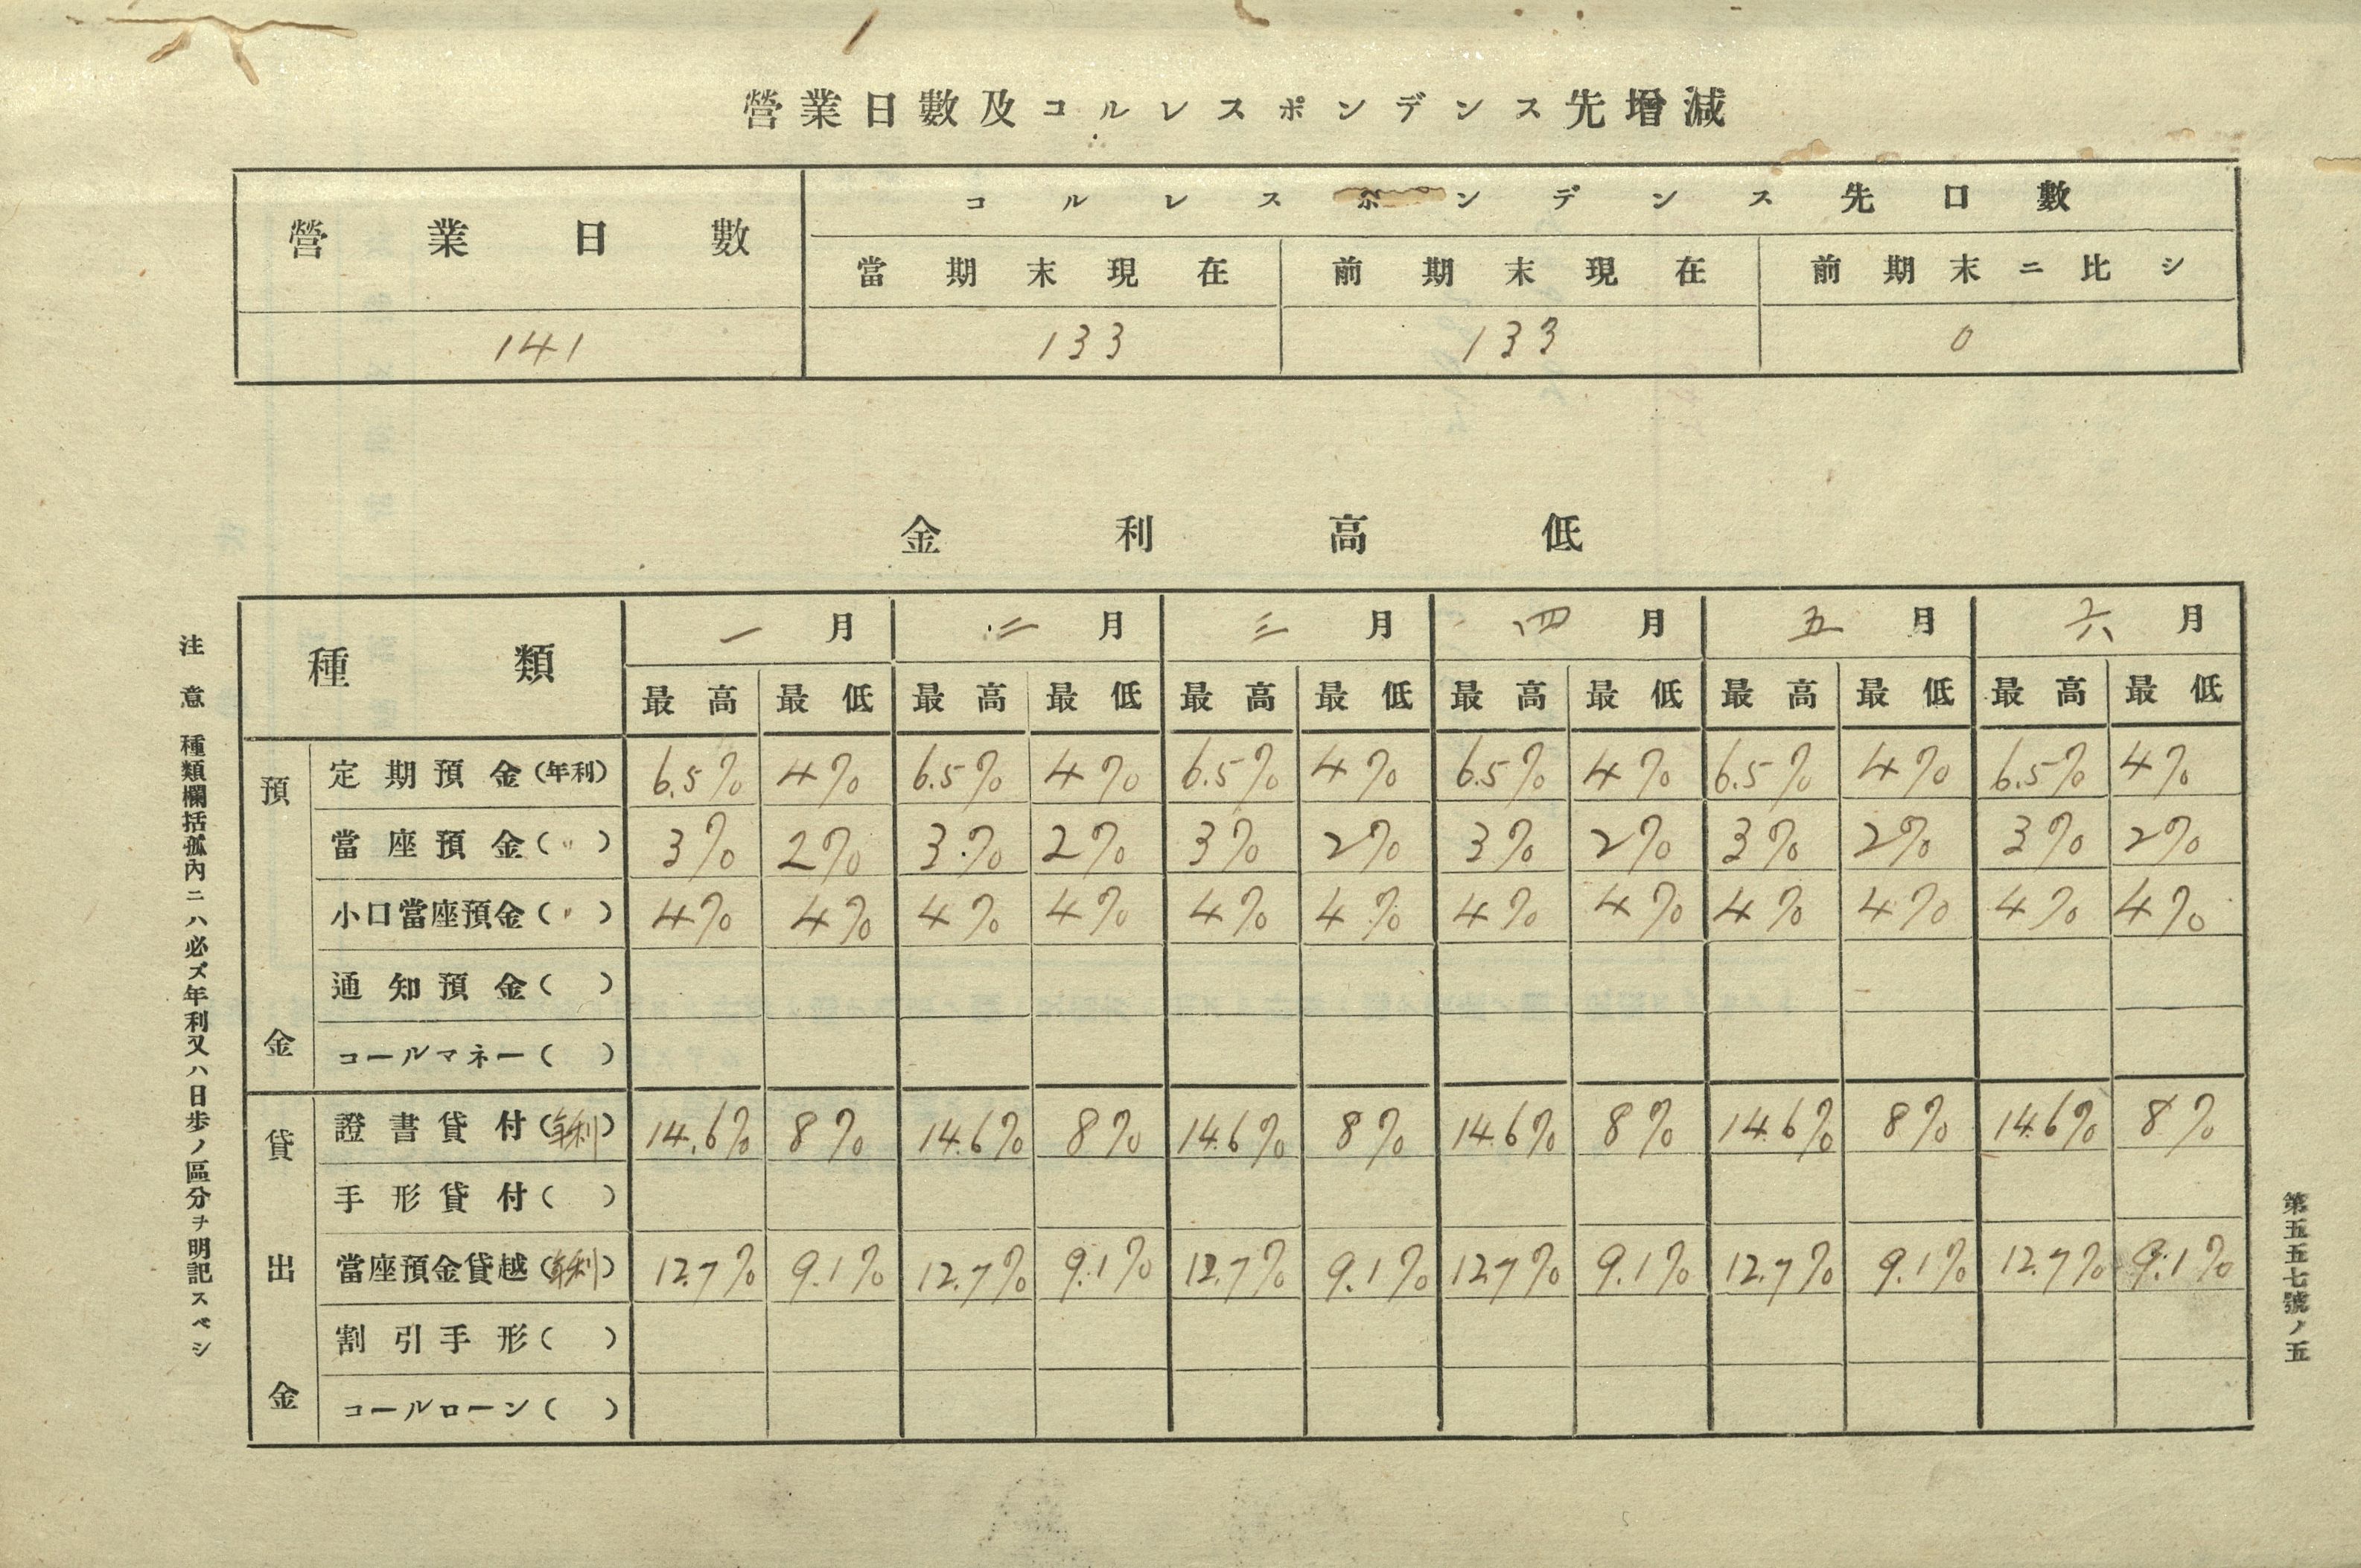 營業日數及コルレスポンデンス先增減
營業日數 コルレスポンデンス先口數
當期末現在 前期末現在 前期末ニ比シ
141 133 133 0
金利高低
種類 一月 二月 三月 四月 五月 六月
最高 最低 最高 最低 最高 最低 最高 最低 最高 最低 最高 最低
預金
定期預金(年利) 6.5% 4% 6.5% 4% 6.5% 4% 6.5% 4% 6.5% 4% 6.5% 4%
當座預金(〃) 3% 2% 3% 2% 3% 2% 3% 2% 3% 2% 3% 2%
小口當座預金(〃) 4% 4% 4% 4% 4% 4% 4% 4% 4% 4% 4% 4%
通知預金( )
コールマネー( )
貸出金
證書貸付(年利) 14.6% 8% 14.6% 8% 14.6% 8% 14.6% 8% 14.6% 8% 14.6% 8%
手形貸付( )
當座預金貸越(年利) 12.7% 9.1% 12.7% 9.1% 12.7% 9.1% 12.7% 9.1% 12.7% 9.1% 12.7% 9.1%
割引手形( )
コールローン( )
注意 種類欄括弧內ニハ必ズ年利又ハ日步ノ區分ヲ明記スベシ
第五五七號ノ五